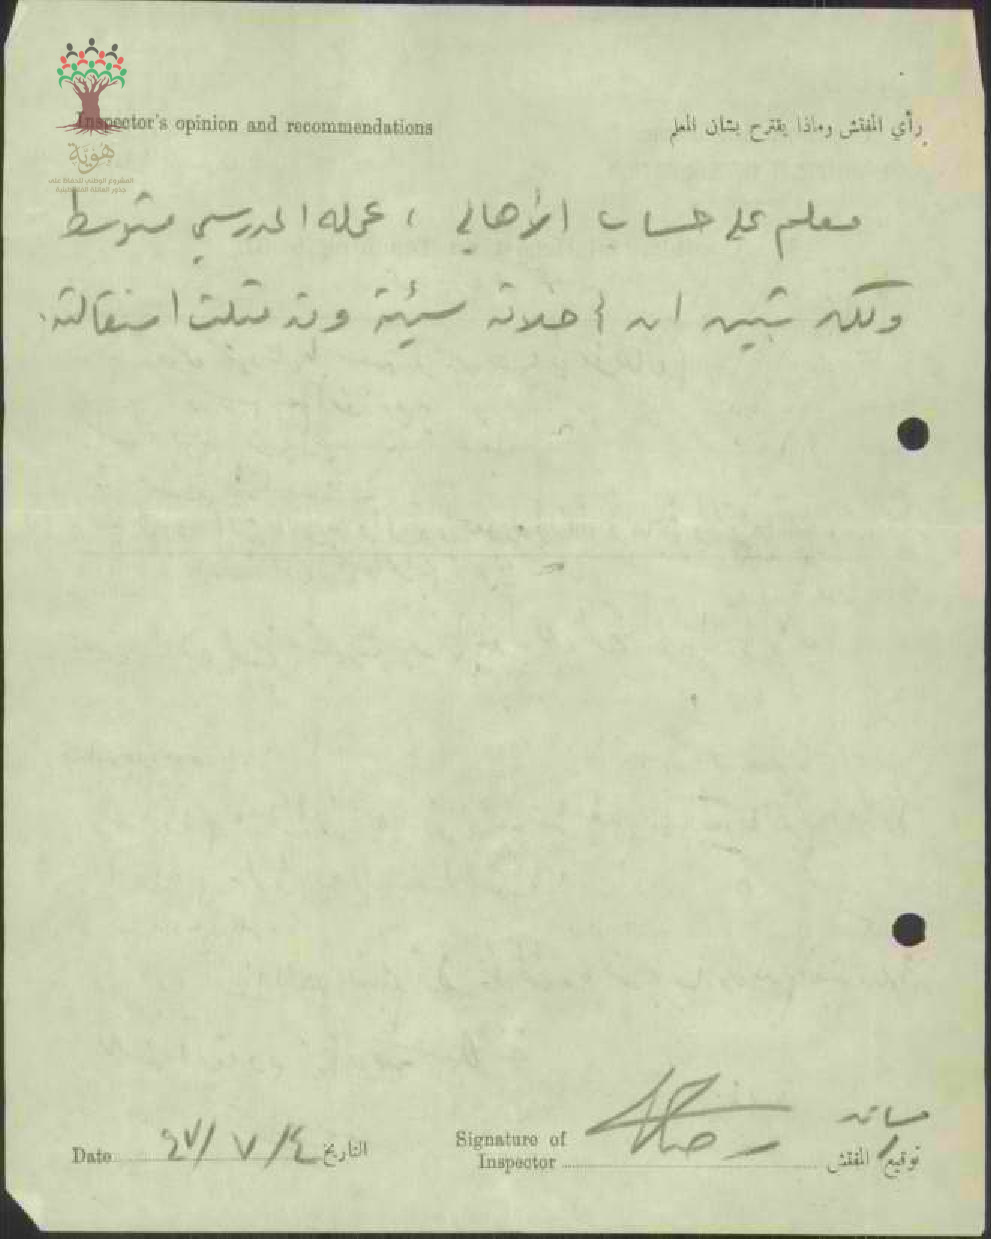 Inspector's opinion and recommendations
رأي المفتش وماذا يقترح بشأن المعلم
هوية
المشروع الوطني للحفاظ على
جذور العائلة الفلسطينية
معلم على حساب الأهالي ، عمله المدرسي متوسط
ولكن تبين ان أخلاقه سيئة وقد قبلت استقالته.
Date
٤/ ٧ /٤٧
التاريخ
Signature of
Inspector
توقيع المفتش